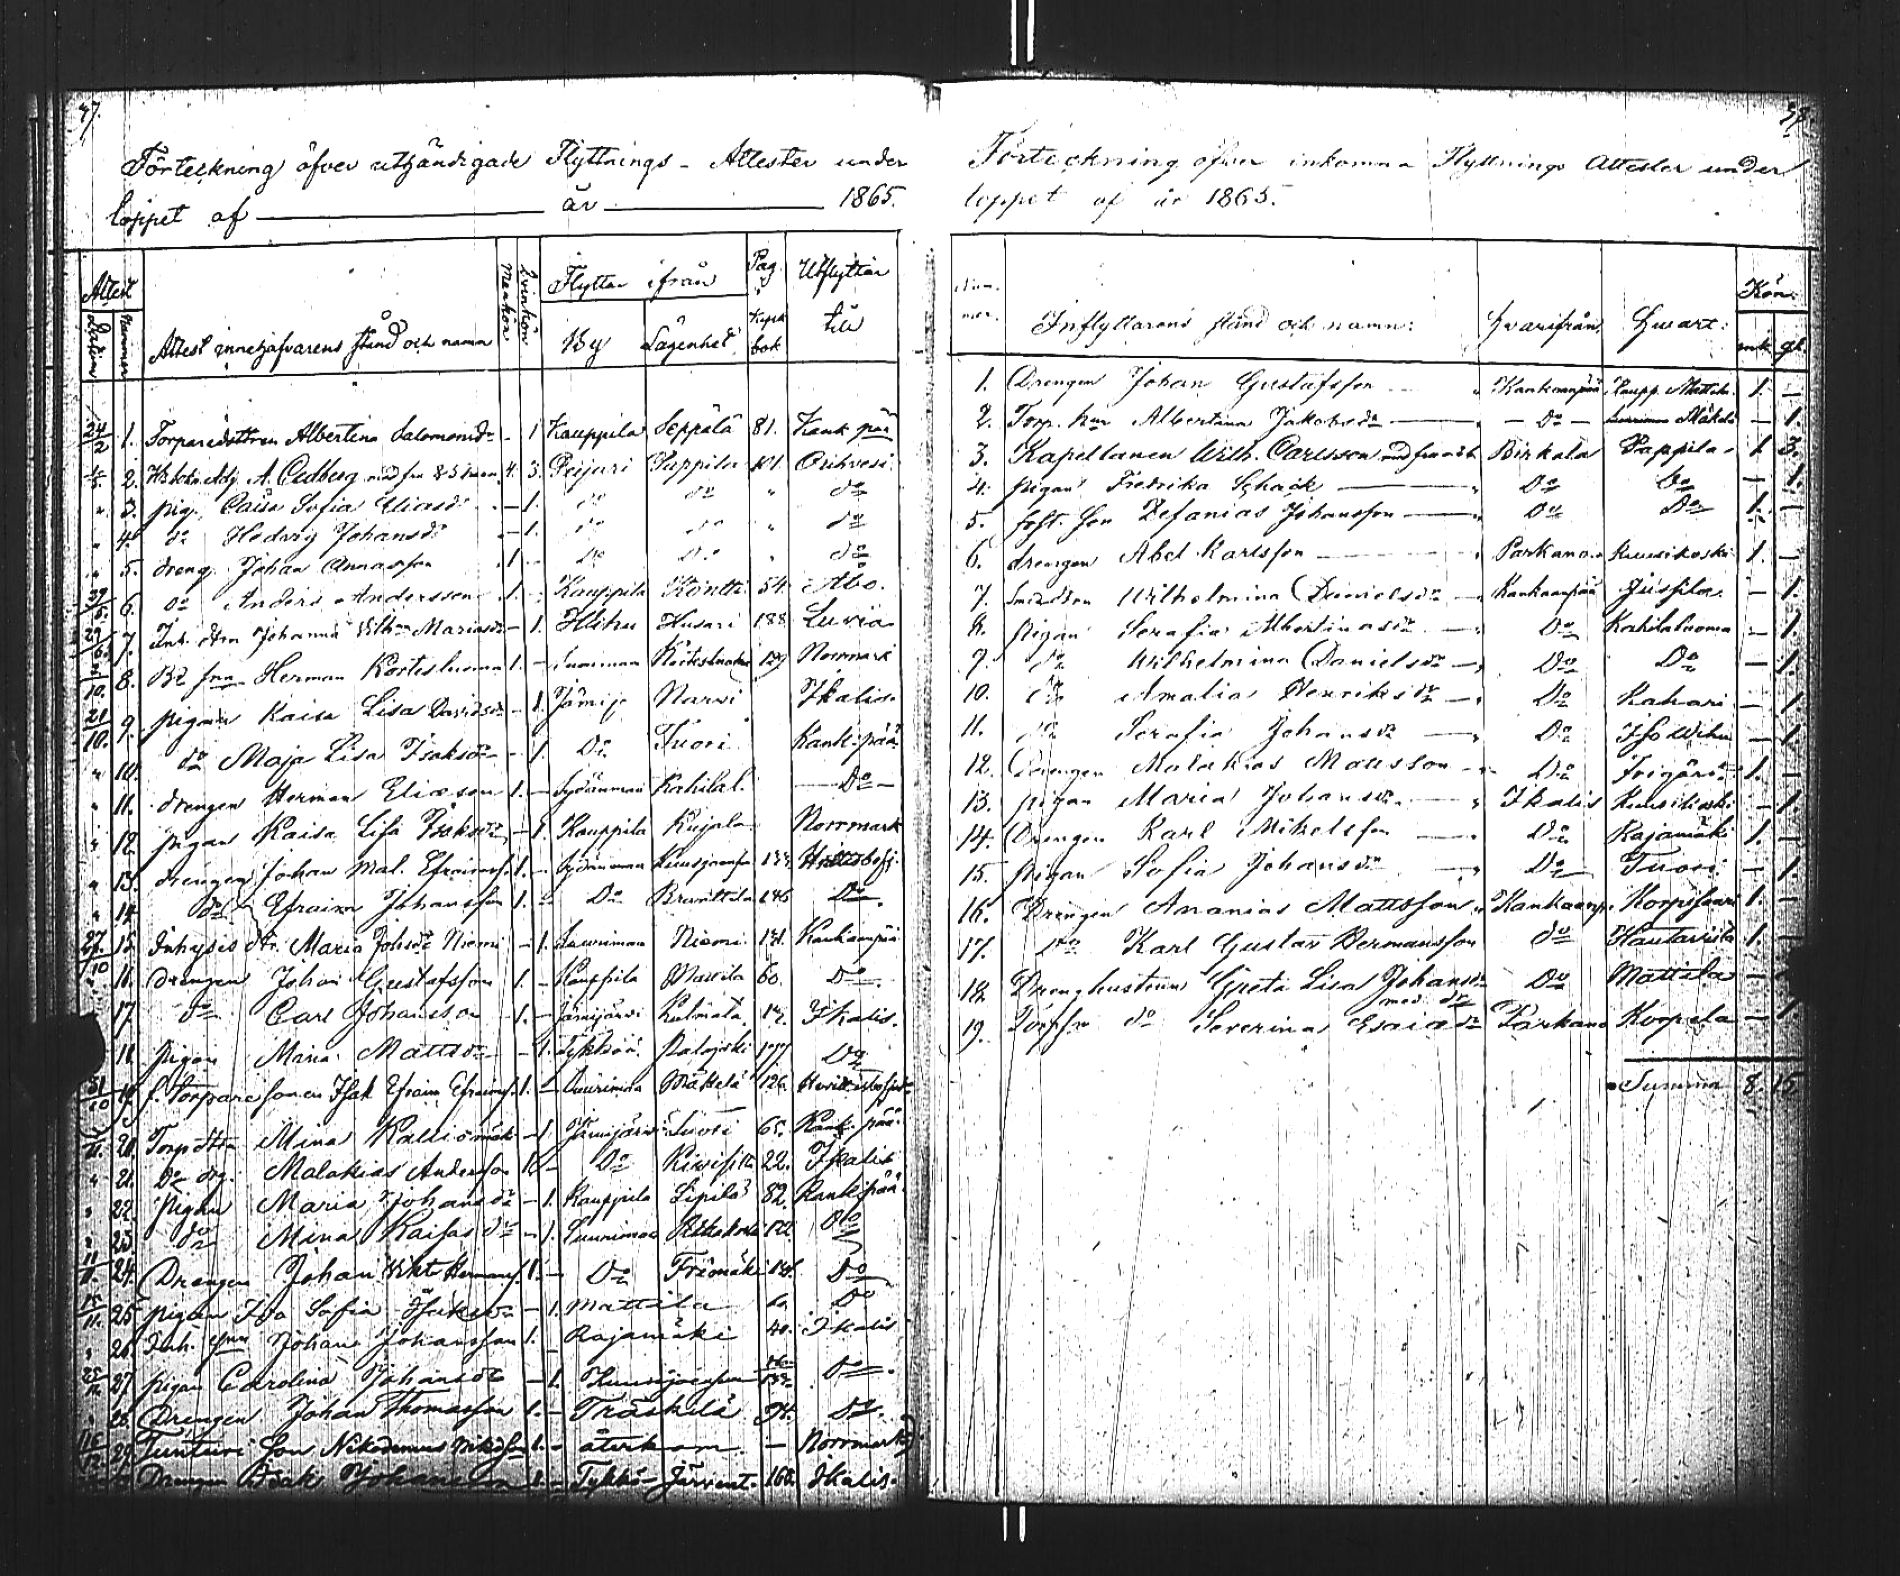 47.
Förteckning öfver uthändigade Flyttnings-Attester under
loppet af år 1865.
Attest
Datum
Nummer
Attest innehafvarens stånd och namn
Mankön
Qvinkön
Flyttar ifrån
By
Lägenhet
Pag. i Kyrk bok
Utflyttar till
24/2 1. Torparedottren Albertina Salomonsdr - 1 Kauppila Seppälä 81. Kank.pää
2. Adj. A. Cedberg med fru & 5 4. 3. Peijari Pappila 101. Orihvesi
" 3. pig. Caisa Sofia Eliasdr - 1. do do " do
" 4. do Hedvig Johansdr - 1. do do " do
" 5. dreng Johan Annasson 1 - Do Do " do
6. do Anders Andersson 1. - Kauppila Köntti 54. Åbo.
7. Inh. dtrn Johanna Wilh. Mariasdr - 1. Hihu Husari 188. Luvia
8. Herman Kortesluoma 1. - 129 Norrmark
21/10. 9. pigan Kaisa Lisa Davidsdr - 1. Jämijr Narvi Ikalis
" 10. do Maja Lisa Isaksdr - 1. Do Tuori Kank.pää
" 11. drengen Herman Eliasson 1. - Sydänmaa Kahilal. Do
" 12. pigan Kaisa Lisa Isaksdr - 1. Kauppila Kujala Norrmark
" 13. drengen Johan Mal. Efraimss. 1. - Sydänmaa
" 14. do Efraim Johansson 1. - Do Branttila 146 Do.
27/10 15. Inhysis dtr. Maria Johsdr Niemi - 1. Luurimaa Niemi 131. Kankaanpää
" 16. drengen Johan Gustafsson 1. - Kauppila Mattila 60. Do.
17. do Carl Johansson 1. - Jämijärvi Ikalis.
18. pigan Maria Mattsdr - 1. Tykköö. Palojoki 177 Do
31/10 19. f. Torpare sonen Isak Efraim Efraimss. 1. - Luurimaa Mäkelä 126.
20. Torp dttr Mina Kalliomäki - 1. Jämijärvi Tuori 65. Kank.pää.
" 21. Do drg. Malakias Andersson 1. - Do 22. Ikalis
" 22. Pigan Maria Johansdr - 1. Kauppila Sipilä 82. Kankpää.
" 23. do Mina Kaisasdr - 1. Luurimaa 122 Do
11/11. 24. Drengen Johan Vikt. Hermanss. 1. - Do Do
25. pigan Ida Sofia Isaksdr - 1. Mattila 60 Do
" 26. Inh. son Johan Johansson 1. - Rajamäki 40. Ikalis
27. pigan Carolina Johansdr - 1. Do.
" 28. Drengen Johan Thomasson 1. - Träskelä 94. Do.
29. Tunturi son Nikodemus 1. - återkom - Norrmark
Drengen Isak Johansson 1. - Tykkö Järvent. 160. Ikalis.
Förteckning öfver inkomna Flyttnings Attester under
loppet af år 1865.
Num-mer.
Inflyttarens stånd och namn:
Hvarifrån,
Hvart:
Kön:
mk. qk.
1. Drengen Johan Gustafsson Kankaanpää Kaupp. Mattila 1. -
2. Torp. hur Albertina Jakobsdr Do Mäkelä - 1.
3. Kapellanen Wilh. Carlsson med fru Birkala Pappila 1 3.
4. pigan Fredrika Schack Do Do - 1.
5. Son Zefanias Johansson Do Do 1. -
6. drengen Abel Karlsson Parkano Kuusikoski 1. -
7. Wilhelmina Danielsdr Kankaanpää Jussila - 1.
8. pigan Serafia Albertinasdr Do Kahilaluoma - 1.
9. do Wilhelmina Danielsdr Do Do - 1.
10. do Amalia Henriksdr Do Kahari - 1
11. do Serafia Johansdr Do Iso Wihu - 1.
12. Drengen Malakias Mattsson Do 1. -
13. pigan Maria Johansdr Ikalis Kuusikoski - 1.
14. Drengen Karl Mikelsson Do Rajamäki 1. -
15. pigan Sofia Johansdr Do Tuori - 1.
16. Drengen Ananias Mattsson Kankaanp. 1. -
17. Do Karl Gustav Hermansson do 1. -
18. Drenghustrun Greta Lisa Johansdr med dtr Do Mattila -
19. do Severina Esaiasdr Parkano Korpela - 1
Summa 8. 15